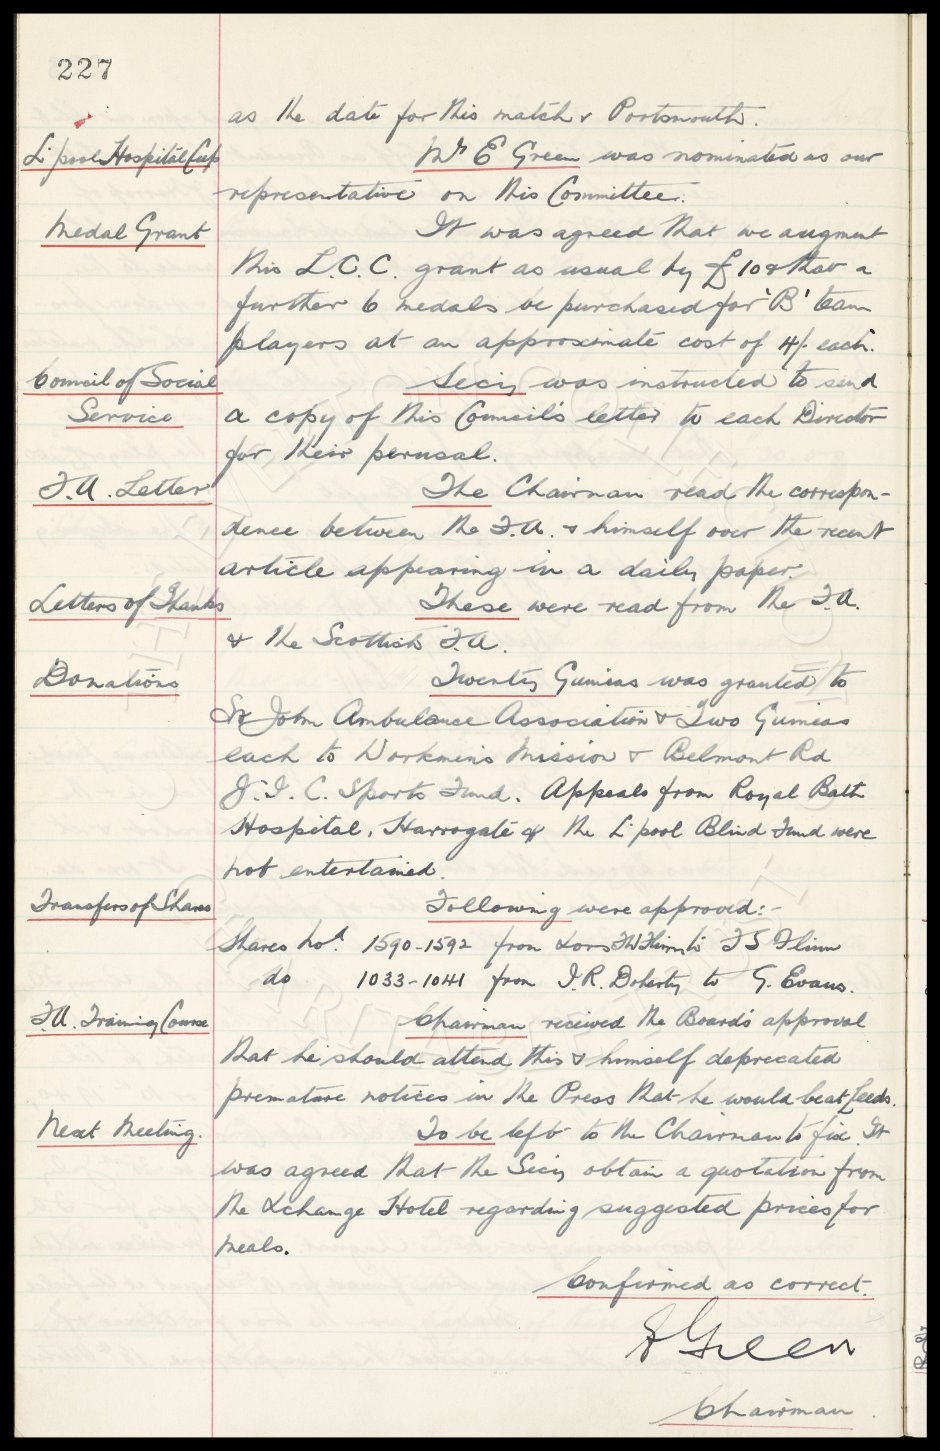 227
as the date for this match v Portsmouth.
L'pool Hospital Cup
Mr E Green was nominated as our
representative on this Committee.
Medal Grant
It was agreed that we augment
this L.C.C. grant as usual by £10 & that a
further 6 medals be purchased for 'B' team
players at an approximate cost of 4/- each.
Council of Social
Service
Secy was instructed to send
a copy of this Council's letter to each Director
for their perusal.
F.A. Letter
The Chairman read the correspon-
dence between the F.A. & himself over the recent
article appearing in a daily paper.
Letters of Thanks
These were read from the F.A.
& the Scottish F.A.
Donations
Twenty Guineas was granted to
St John Ambulance Association & Two Guineas
each to Workmen's Mission & Belmont Rd
J.I.C. Sports Fund. Appeals from Royal Bath
Hospital, Harrogate & the L'pool Blind Fund were
not entertained.
Transfers of Shares
Following were approved:-
Shares Nos. 1590-1592 from to F S Flinn
do 1033-1041 from I.R. Doherty to G. Evans.
F.A. Training Course
Chairman received the Board's approval
that he should attend this & himself deprecated
premature notices in the Press that he would be at Leeds.
Next Meeting.
To be left to the Chairman to fix. It
was agreed that the Secy obtain a quotation from
the Xchange Hotel regarding suggested prices for
meals.
Confirmed as correct.
Green
Chairman.